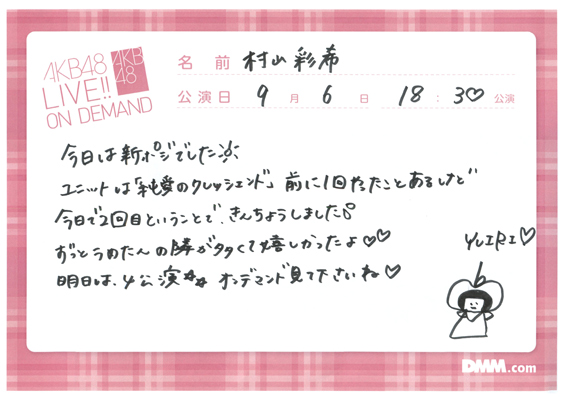 AKB48
LIVE!!
ON DEMAND
AKB
48
名 前 村山彩希
公演日 9 月 6 日 18 : 30♡ 公演
今日は新ポジでした
ユニットは「純愛のクレッシェンド」前に1回やったことあるけど
今日で2回目ということで、きんちょうしました
ずっとうめたんの隣が多くて嬉しかったよ♡♡
明日は、4公演☆☆ オンデマンド見て下さいね♡
YUIRI♡
DMM.com